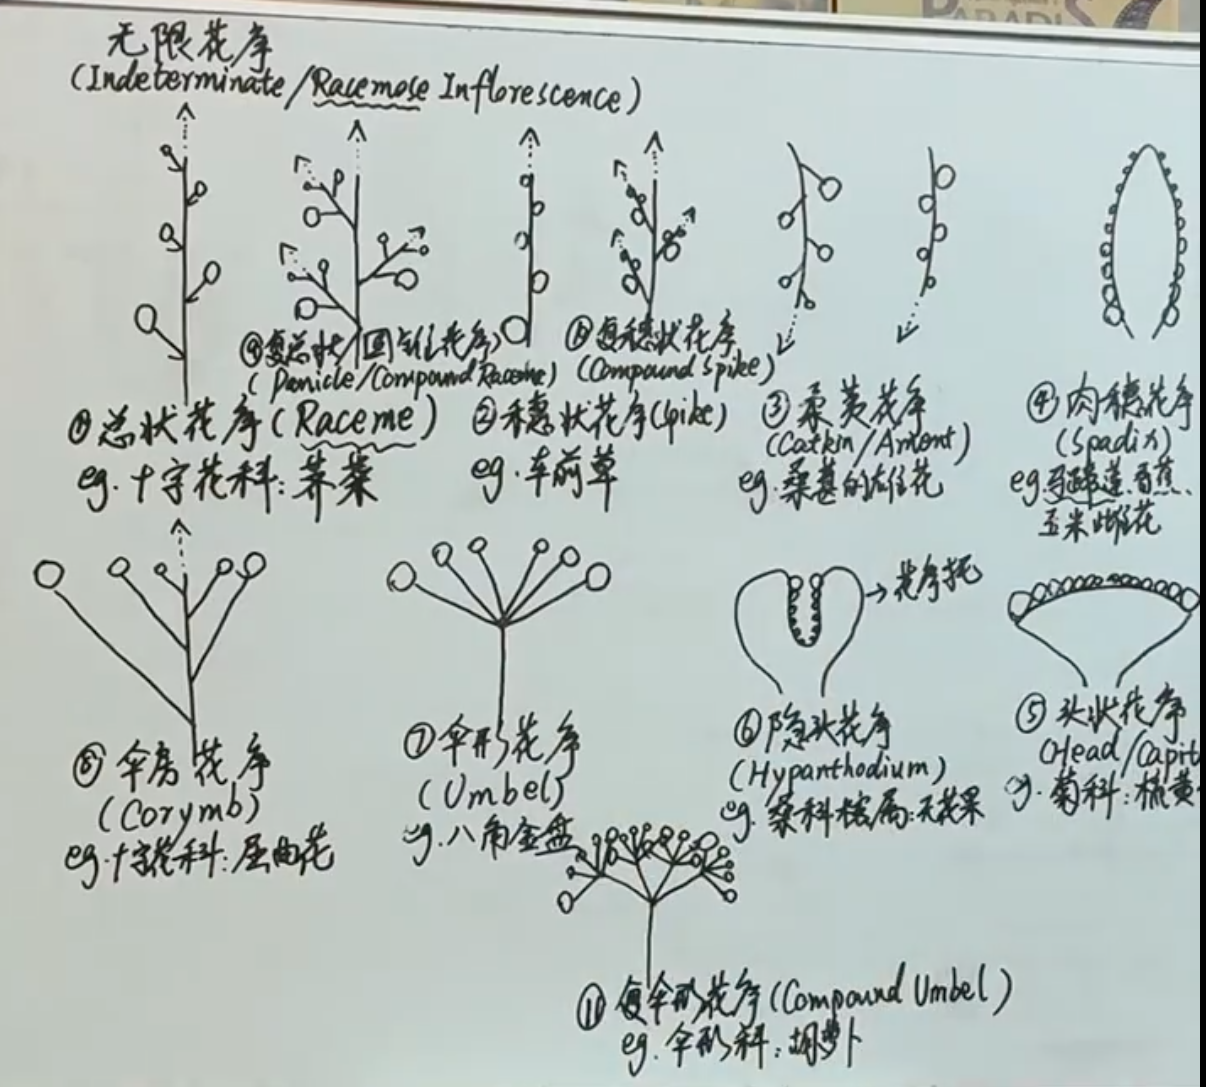 PARADIS
无限花序
(Indeterminate/Racemose Inflorescence)
⑨复总状/圆锥花序
(Panicle/Compound Raceme)
⑩复穗状花序
(Compound Spike)
①总状花序(Raceme)
eg.十字花科:荠菜
②穗状花序(Spike)
eg.车前草
③柔荑花序
(Catkin/Ament)
eg.桑葚的雄花
④肉穗花序
(Spadix)
eg.马蹄莲.香蕉、
玉米雌花
⑧伞房花序
(Corymb)
eg.十字花科:屈曲花
⑦伞形花序
(Umbel)
eg.八角金盘
→花序托
⑥隐头花序
(Hypanthodium)
eg.桑科榕属:无花果
⑤头状花序
(Head/Capit
eg.菊科:
⑪复伞形花序(Compound Umbel)
eg.伞形科:胡萝卜